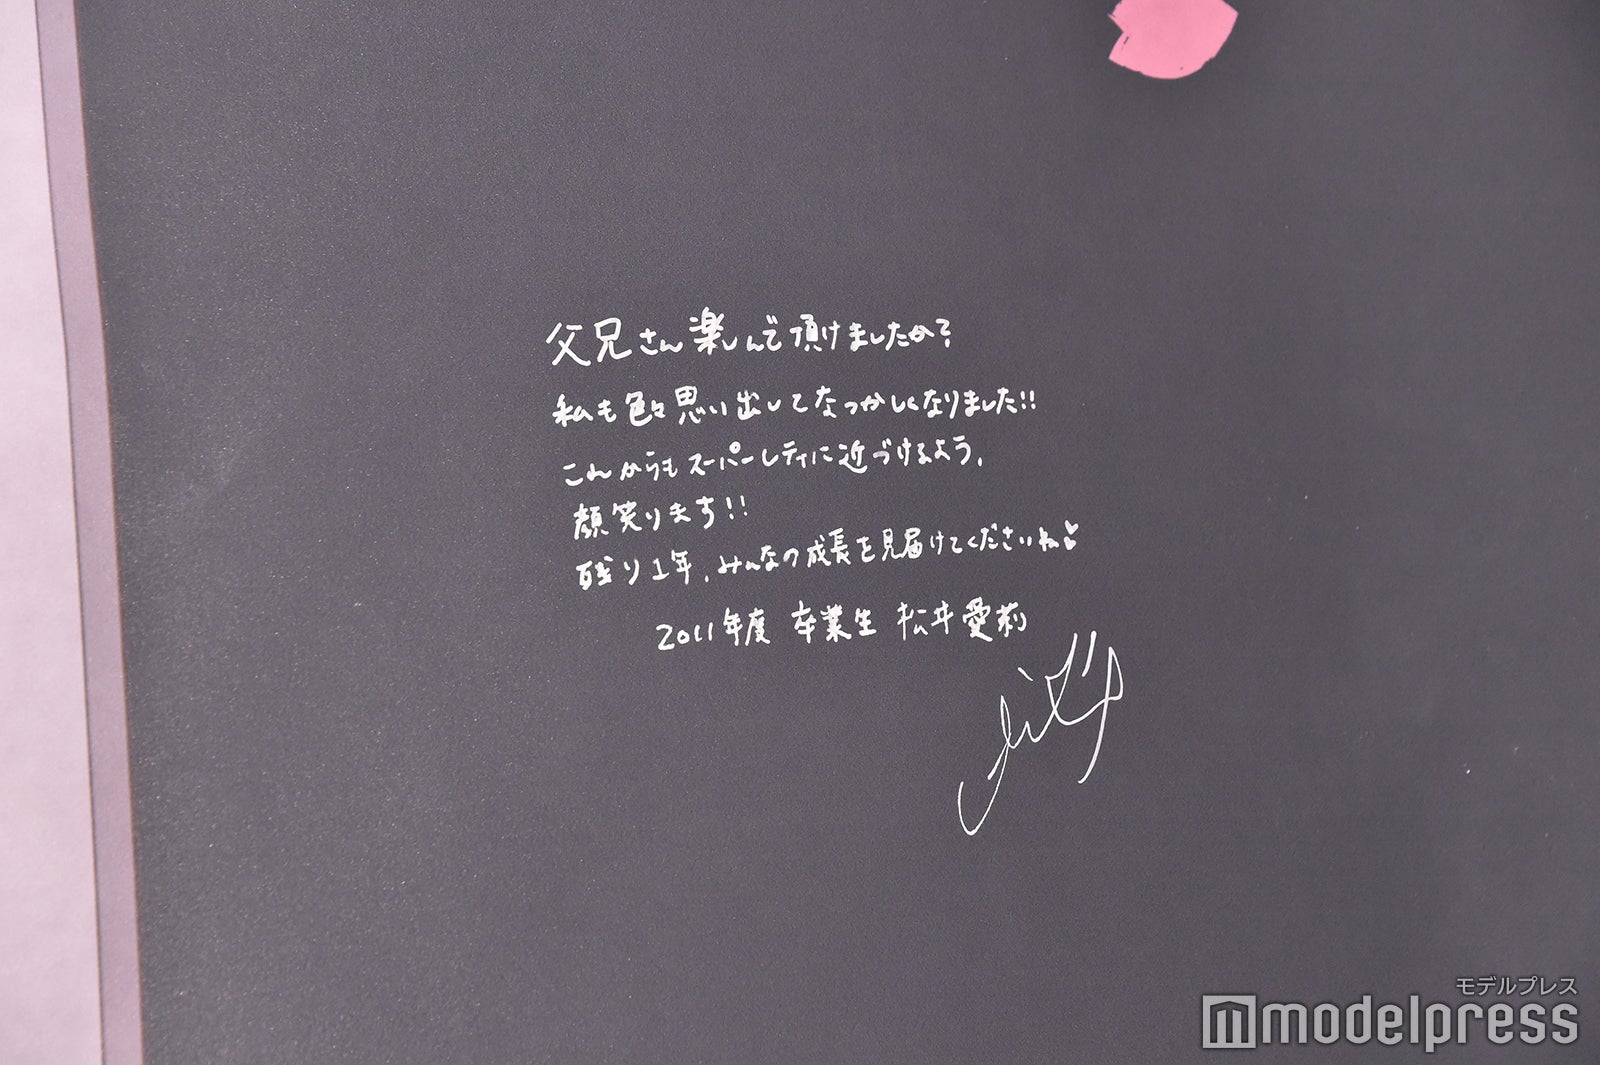 父兄さん楽しんで頂けましたか?
私も色々思い出してなつかしくなりました!!
これからもスーパーレディに近づけるよう、
顔笑ります!!
残り1年、みんなの成長を見届けてくださいね♥
2011年度 卒業生 松井愛莉
モデルプレス
modelpress